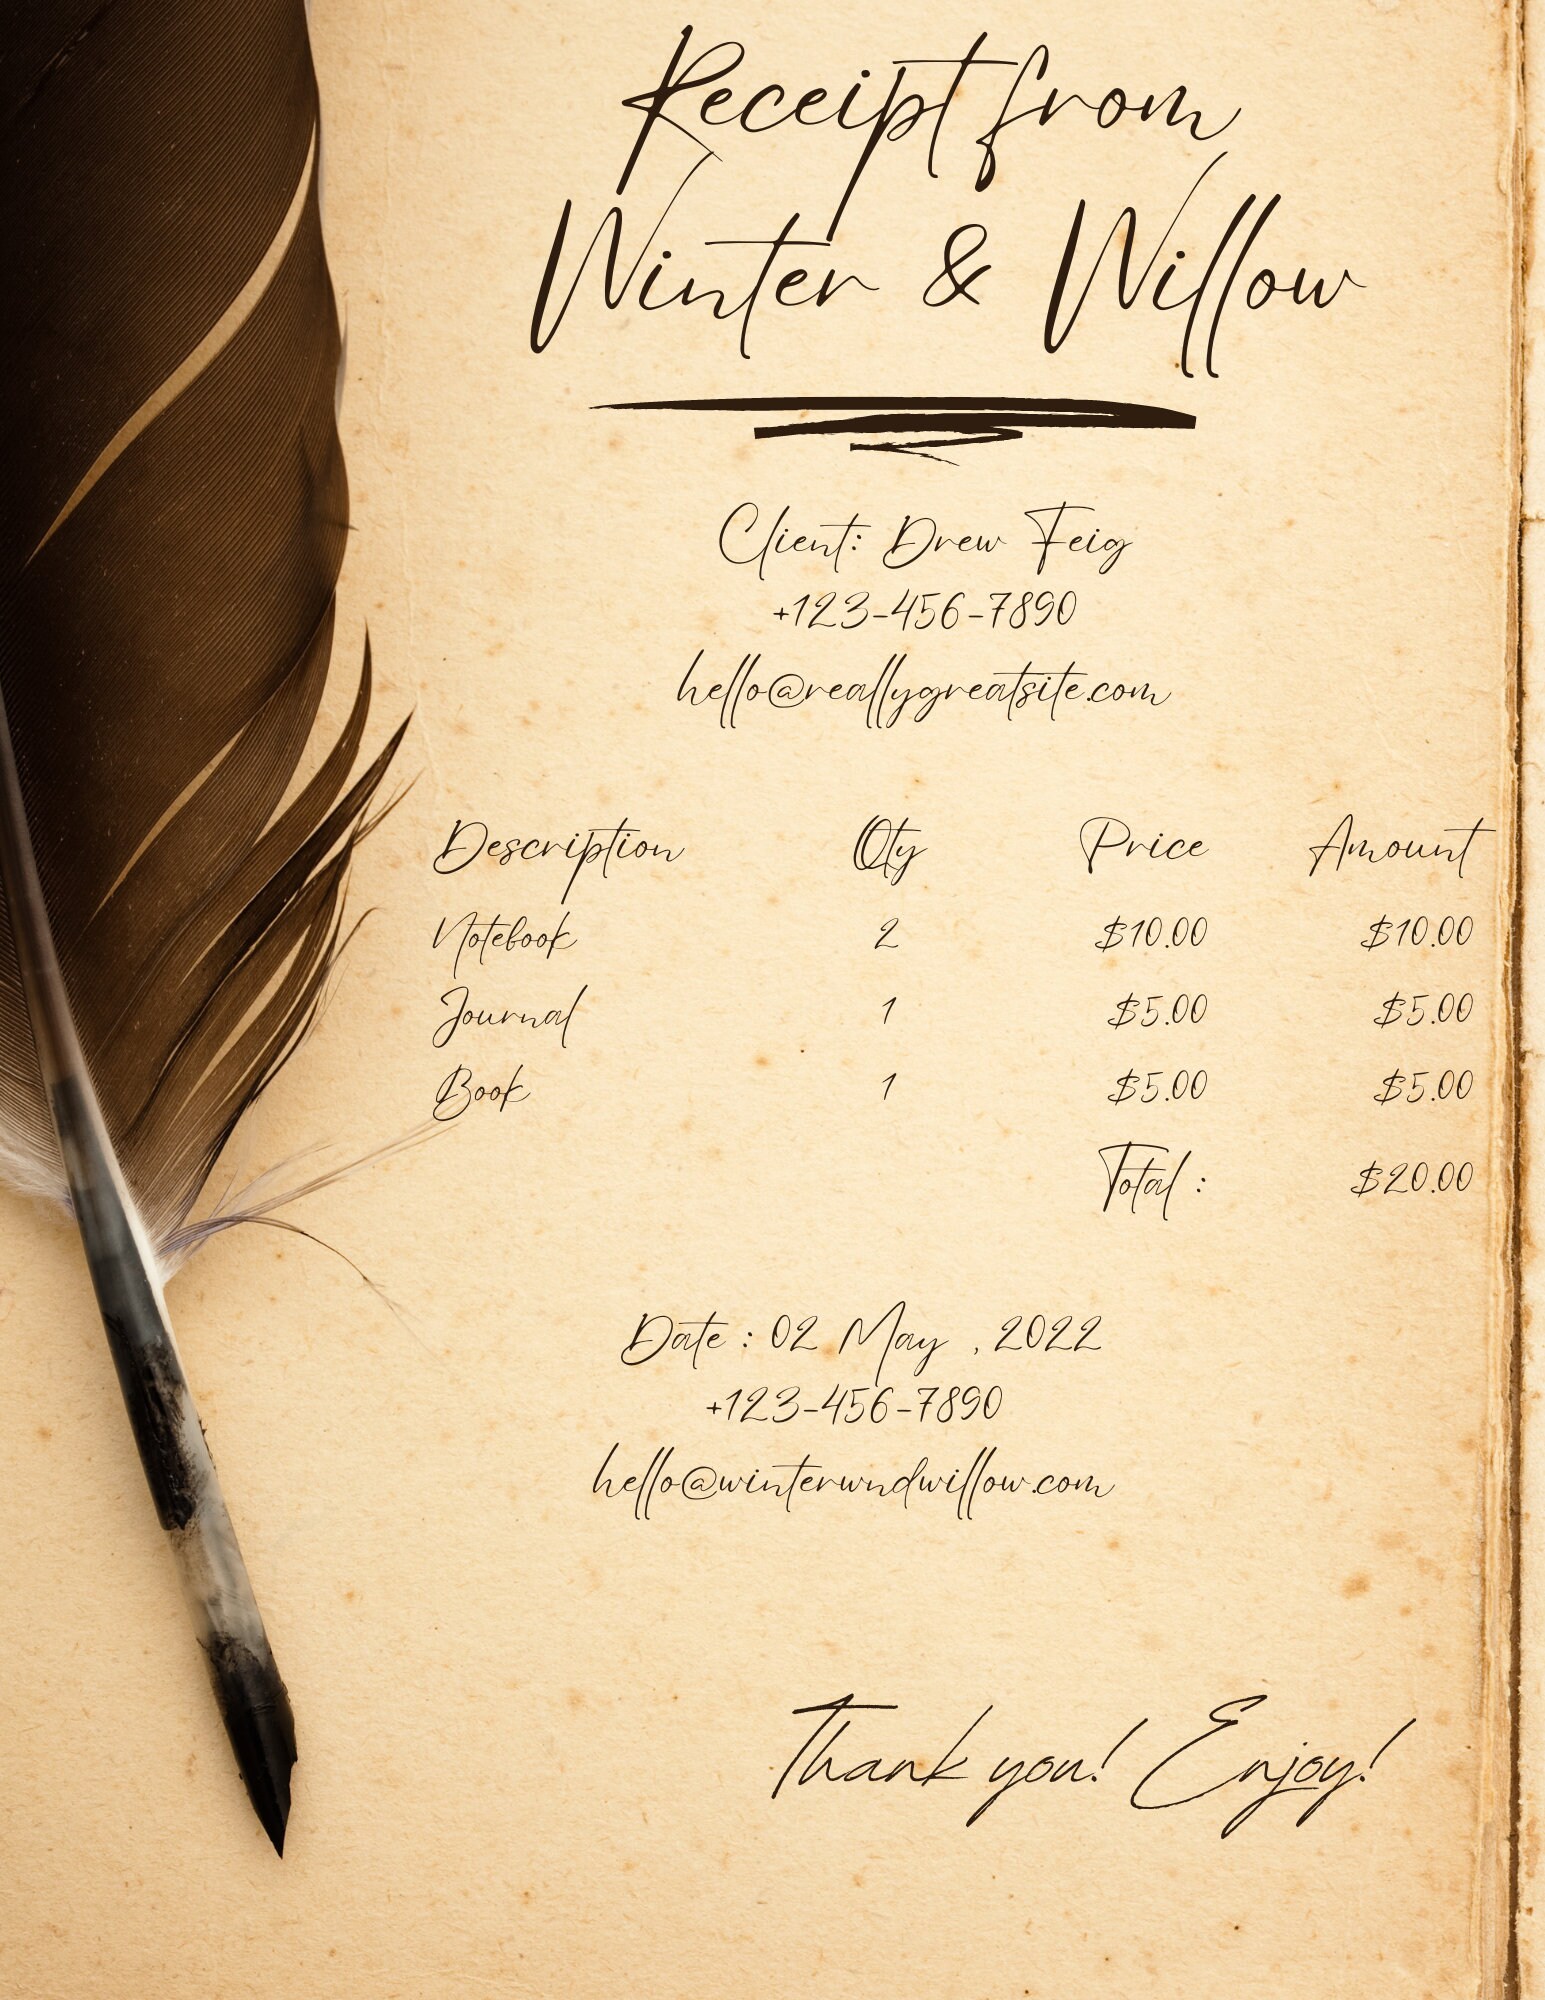 Receipt from
Winter & Willow
Client: Drew Feig
+123-456-7890
hello@reallygreatsite.com
Description Qty Price Amount
Notebook 2 $10.00 $10.00
Journal 1 $5.00 $5.00
Book 1 $5.00 $5.00
Total : $20.00
Date : 02 May , 2022
+123-456-7890
hello@winterwndwillow.com
Thank you! Enjoy!